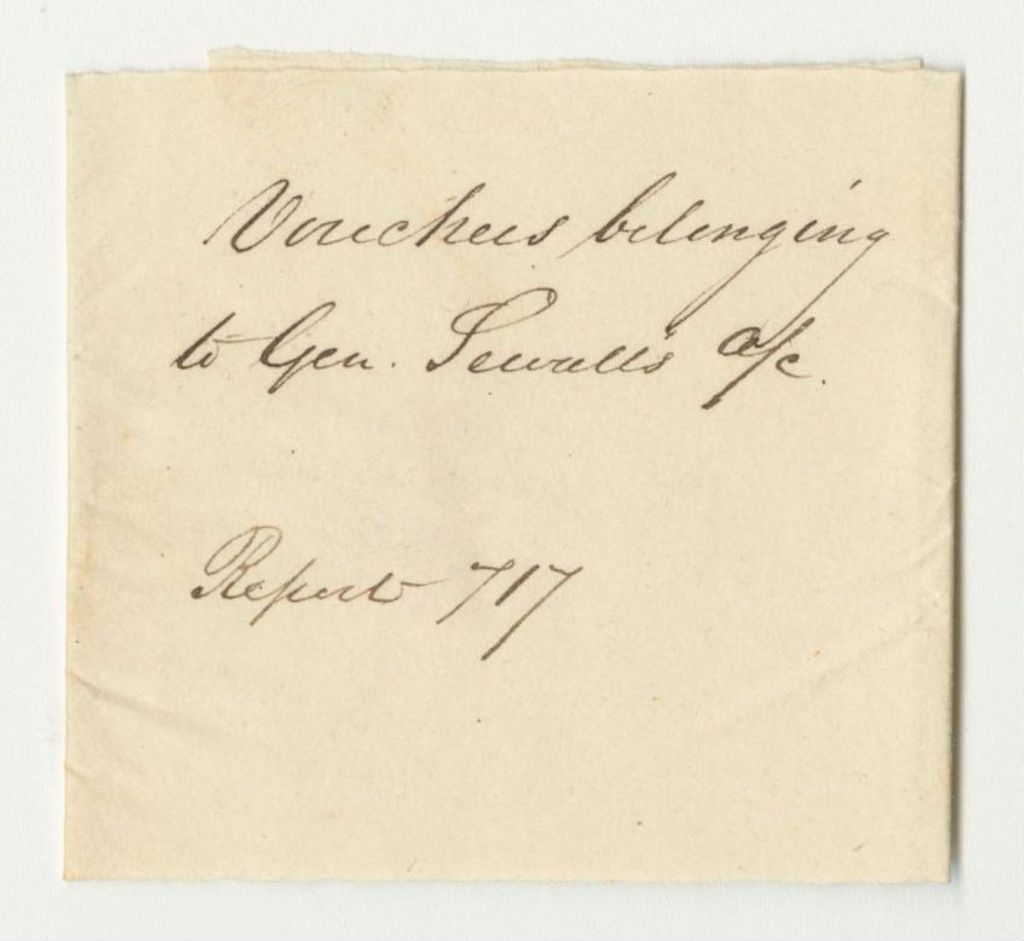 Vouchers belonging
to Gen. Sewall's a/c.
Report 717